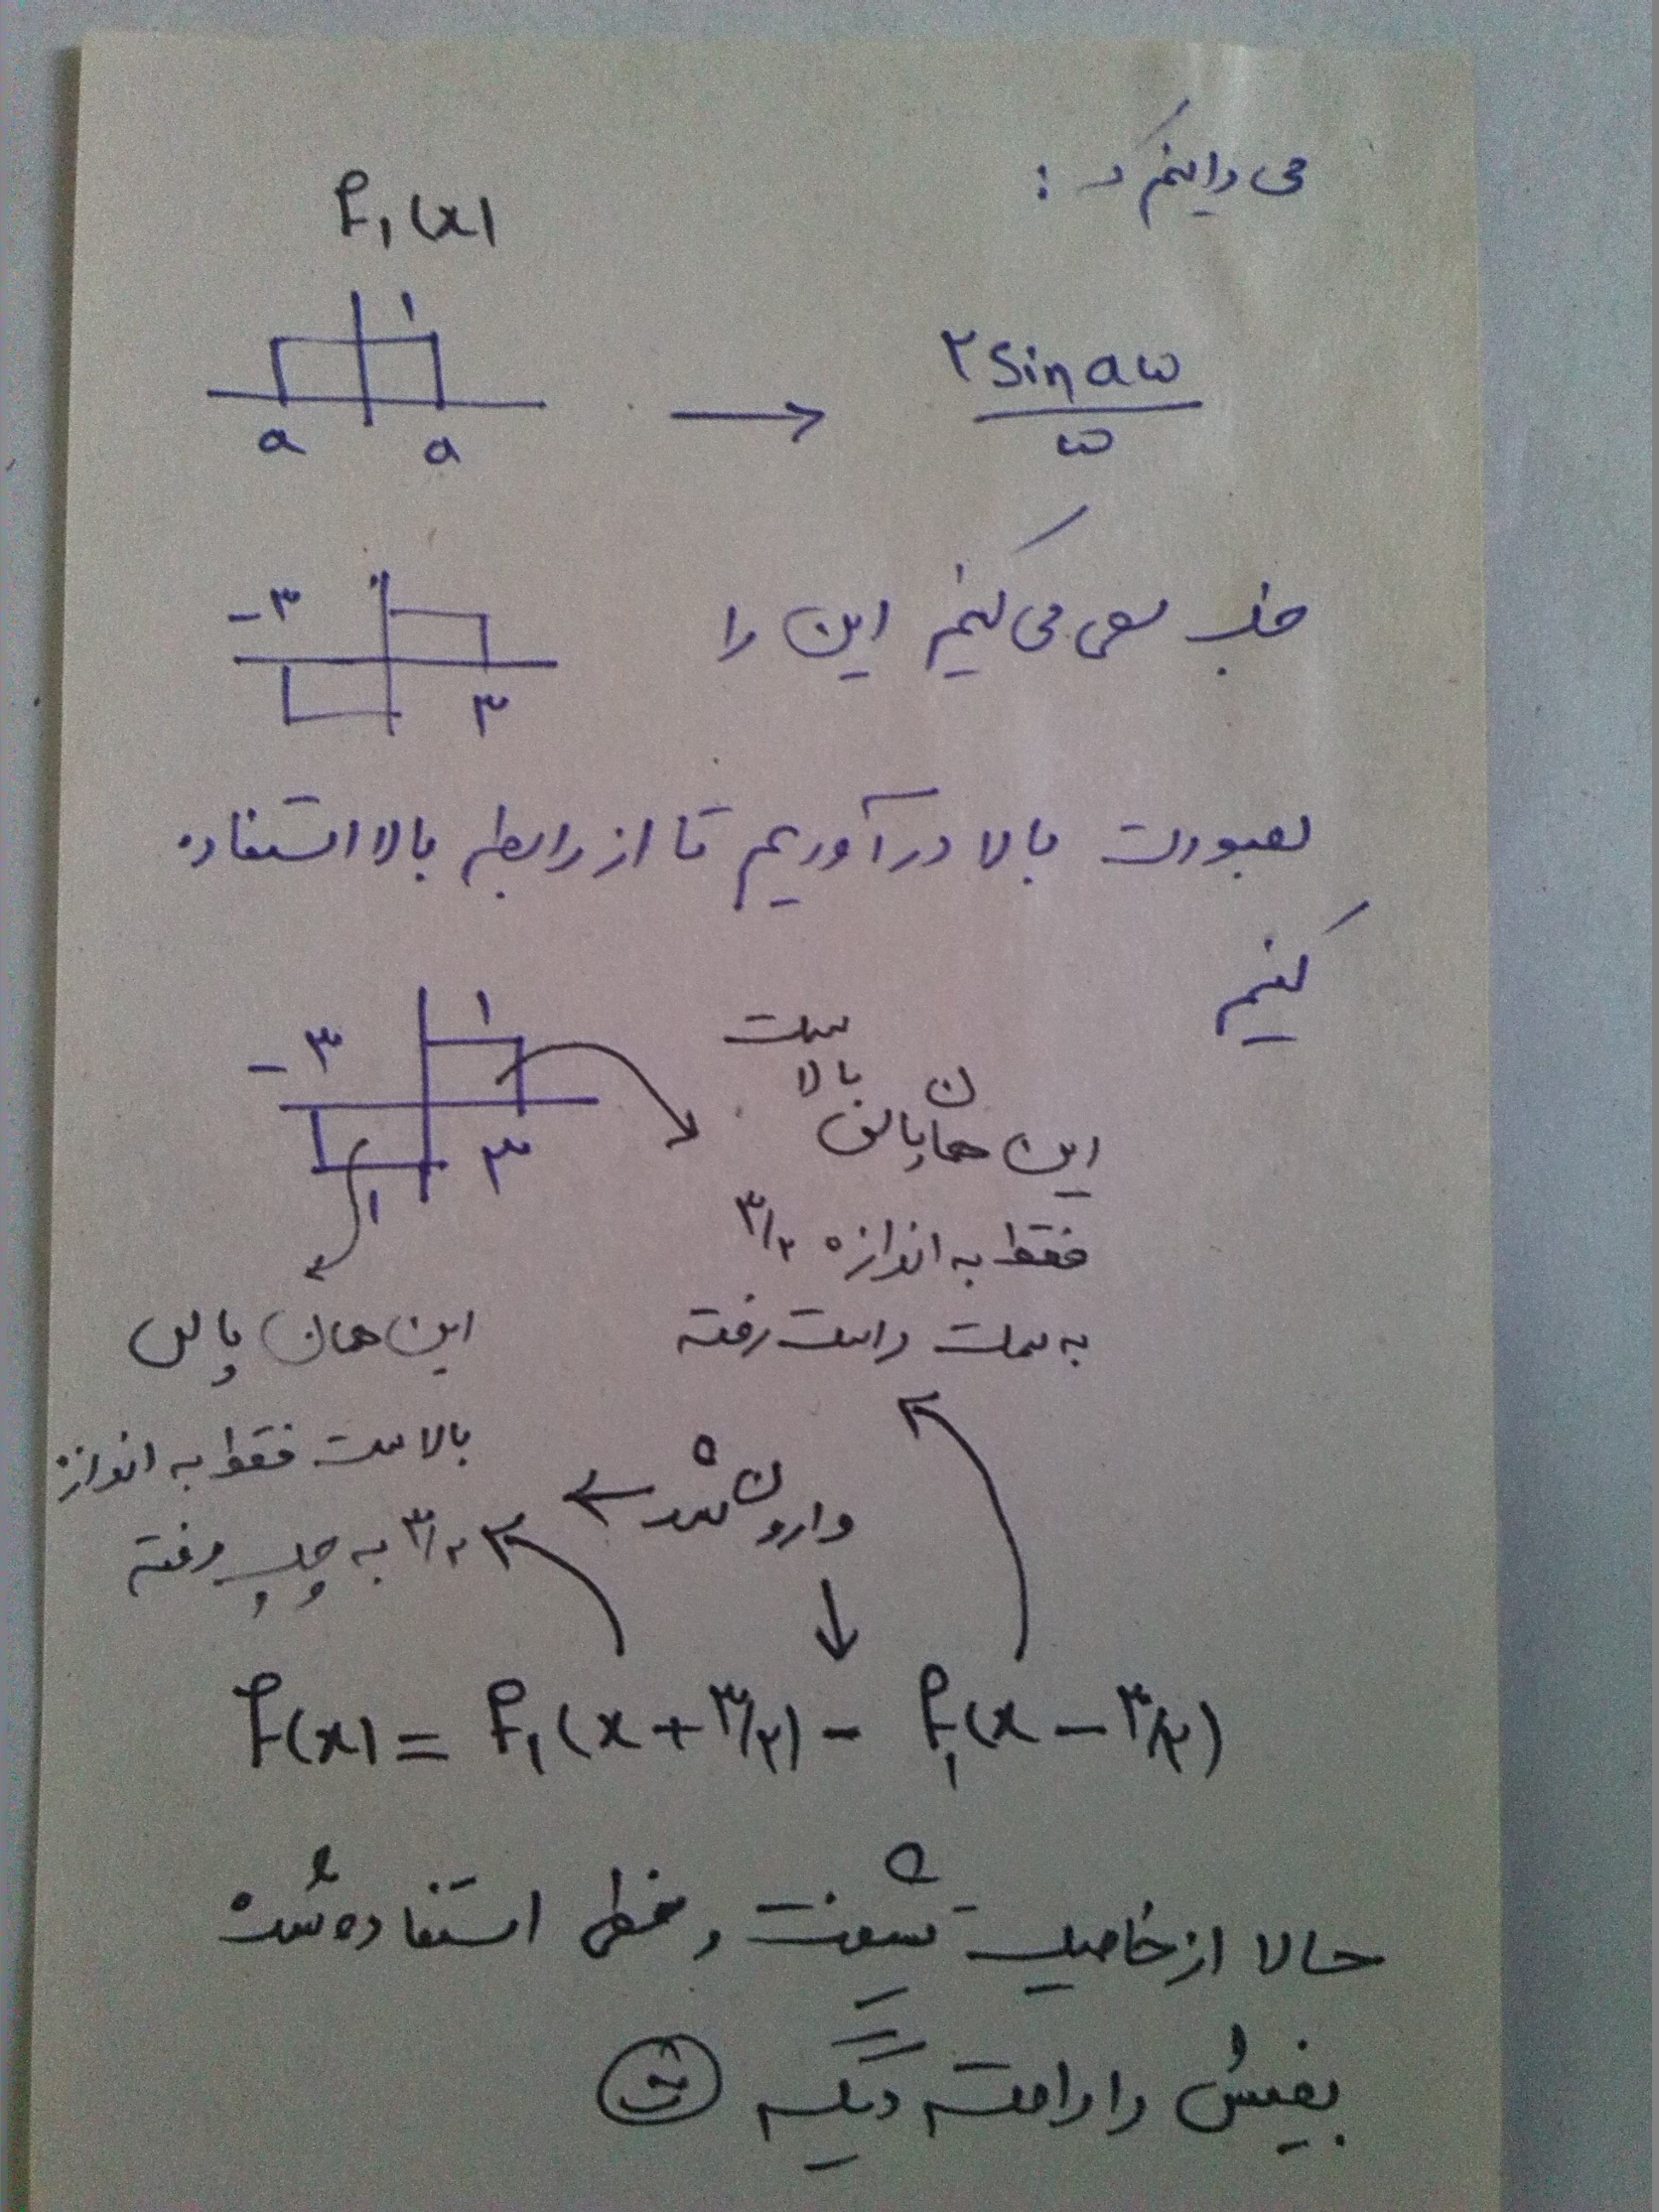 می دانیم که :
f₁(x)
۱
a a
→ ۲ sin aω / ω
خب سعی می کنیم این را
-۳ ۳
بصورت بالا در آوریم تا از رابطه بالا استفاده
کنیم
-۳ ۱ ۳ ۱
این همان پالس بالاست
فقط به اندازه ۳/۲
به سمت راست رفته
این همان پالس
بالاست فقط به اندازه
۳/۲ به چپ رفته
وارون شده
f(x) = f₁(x + ۳/۲) - f₁(x - ۳/۲)
حالا از خاصیت شیفت و خطی استفاده شده
بقیش را راحته دیگه